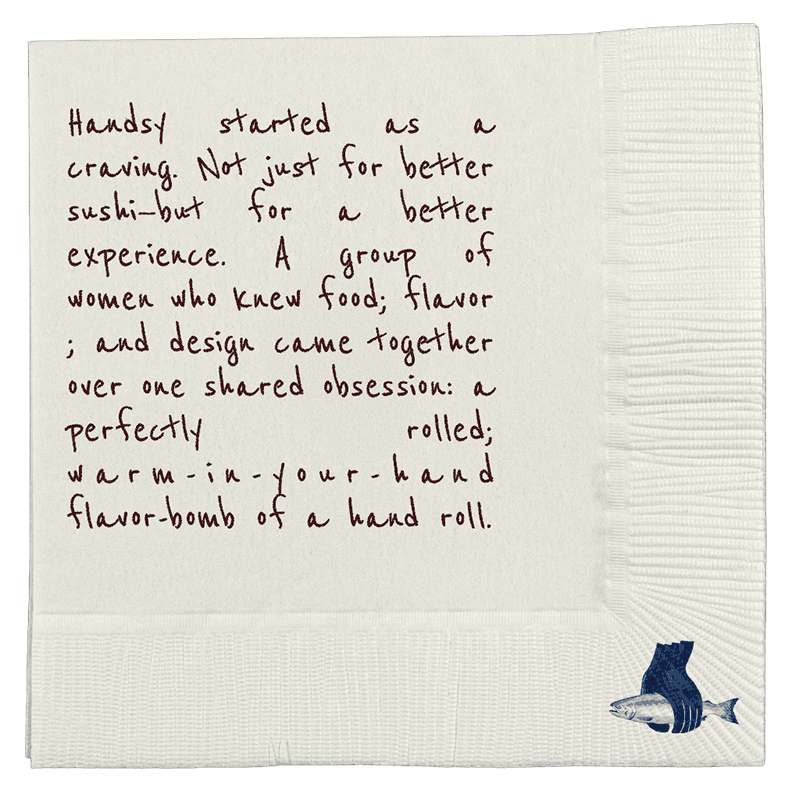 Handsy started as a
craving. Not just for better
sushi—but for a better
experience. A group of
women who knew food; flavor
; and design came together
over one shared obsession: a
perfectly rolled;
warm-in-your-hand
flavor-bomb of a hand roll.